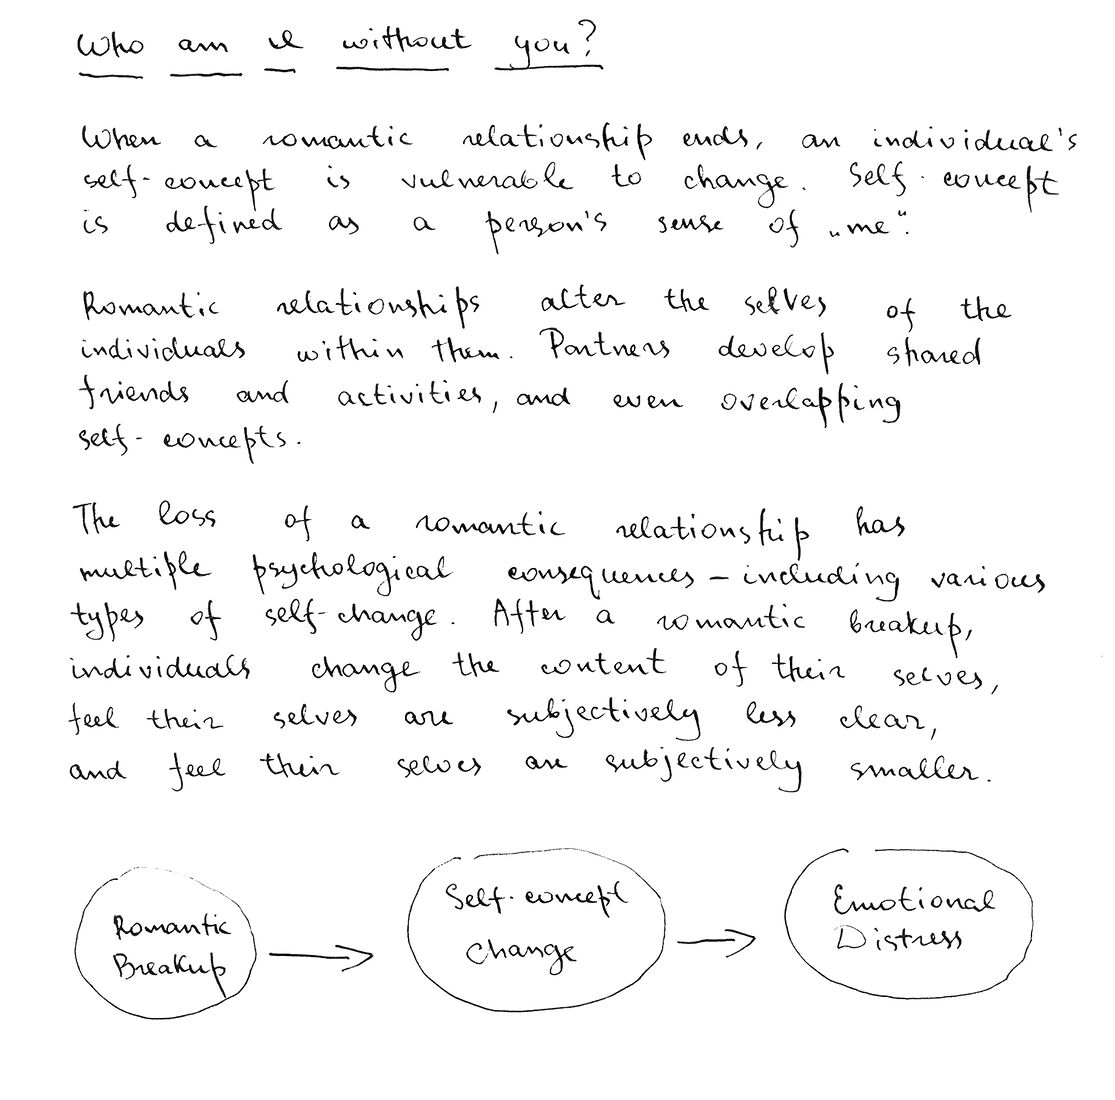 Who am I without you?
When a romantic relationship ends, an individual's
self-concept is vulnerable to change. Self-concept
is defined as a person's sense of „me“.
Romantic relationships alter the selves of the
individuals within them. Partners develop shared
friends and activities, and even overlapping
self-concepts.
The loss of a romantic relationship has
multiple psychological consequences – including various
types of self-change. After a romantic breakup,
individuals change the content of their selves,
feel their selves are subjectively less clear,
and feel their selves are subjectively smaller.
Romantic
Breakup
Self-concept
Change
Emotional
Distress